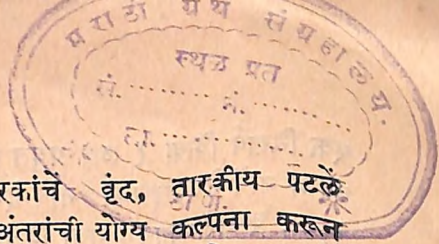 मराठी ग्रंथ संग्रहालय.
स्थळ प्रत
सं. .......... नं. ..........
रकांचें वृंद, तारकीय पटलें
अंतरांची योग्य कल्पना करून